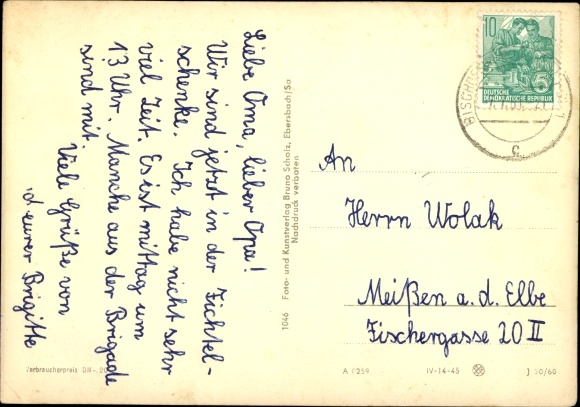 Liebe Oma, lieber Opa!
Wir sind jetzt in der Fichtel-
schenke. Ich habe nicht sehr
viel Zeit. Es ist mittag um
13 Uhr. Manche aus der Brigade
sind mit.
Viele Grüße von
eurer Brigitte
1046 Foto- und Kunstverlag Bruno Scholz, Ebersbach/Sa
Nachdruck verboten
10
5
DEUTSCHE
DEMOKRATISCHE REPUBLIK
An
Herrn Wolak
Meißen a. d. Elbe
Fischergasse 20 II
Verbraucherpreis DM -,20
A 0259
IV-14-45
J 50/60